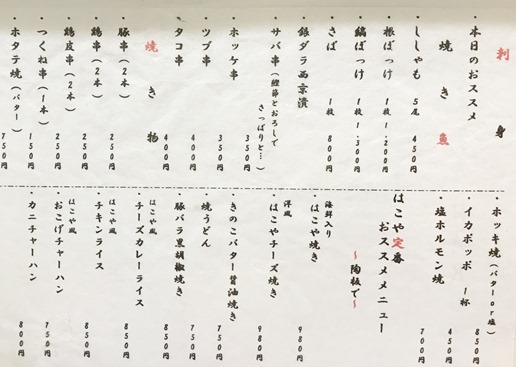 刺身
・本日のおススメ
焼き魚
・ししゃも 5尾 450円
・根ぼっけ 1枚 1.200円
・縞ほっけ 1枚 1.300円
・さば 1枚 800円
・銀ダラ西京漬
・サバ串（鰹節とおろしで
さっぱりと…） 350円
・ホッケ串 350円
・ツブ串 400円
・タコ串 400円
焼き物
・豚串（2本） 250円
・鶏串（2本） 250円
・鶏皮串（2本） 250円
・つくね串（1本） 150円
・ホタテ焼（バター） 750円
・ホッキ焼（バターor塩） 850円
・イカポッポ 1杯 450円
・塩ホルモン焼 700円
はこや定番
おススメメニュー
～陶板で～
海鮮入り
・はこや焼き 980円
洋風
・はこやチーズ焼き 980円
・きのこバター醤油焼き 750円
・焼うどん 750円
・豚バラ黒胡椒焼き 850円
はこや風
・チーズカレーライス 850円
はこや風
・チキンライス 850円
はこや風
・おこげチャーハン 750円
・カニチャーハン 800円